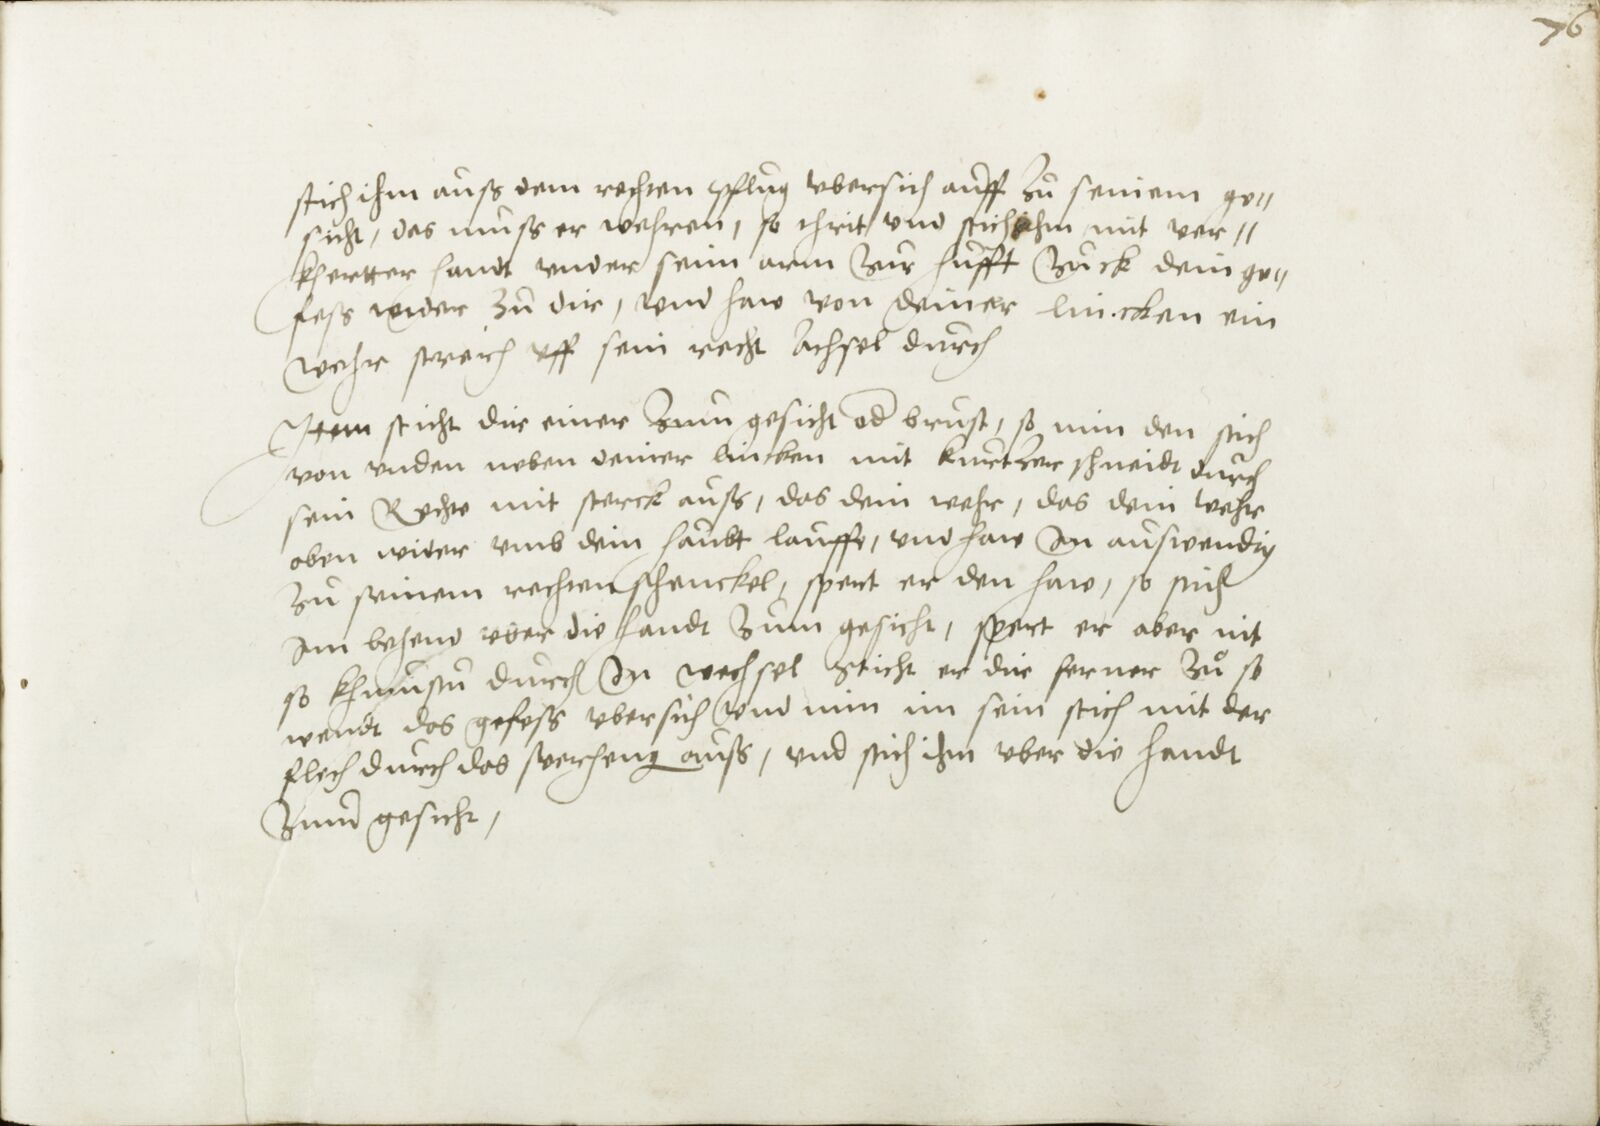 76
stich ihm auß dem rechten pflug vbersich auff Zu seinem ge=
sicht, das muß er wehren, so thrit vnd stich ihm mit ver=
khertter handt vnder seim arm Zur hufft Zuck dein ge=
feß wider Zu dir, vnd haw von deiner lincken ein
wehr streich vff sein recht Achsel durch
Item sticht dir einer Zum gesicht od brust, so nim den stich
von vnden neben deiner lincken mit kurtzer schneidt durch
sein Rechte mit sterck auß, das dein wehr, das dein wehr
oben wider vmb dein haubt lauffe, vnd haw Im auswendig
Zu seinem rechten schenckel, spert er den haw, so stich
Im behend vber die handt Zum gesicht, spert er aber nit
so khumstu durch Im wechsel Sticht er dir ferner Zů so
wendt das gefeß vbersich vnd nim im sein stich mit der
flech durch das auß, vnd stich ihm vber die handt
Zum gesicht,